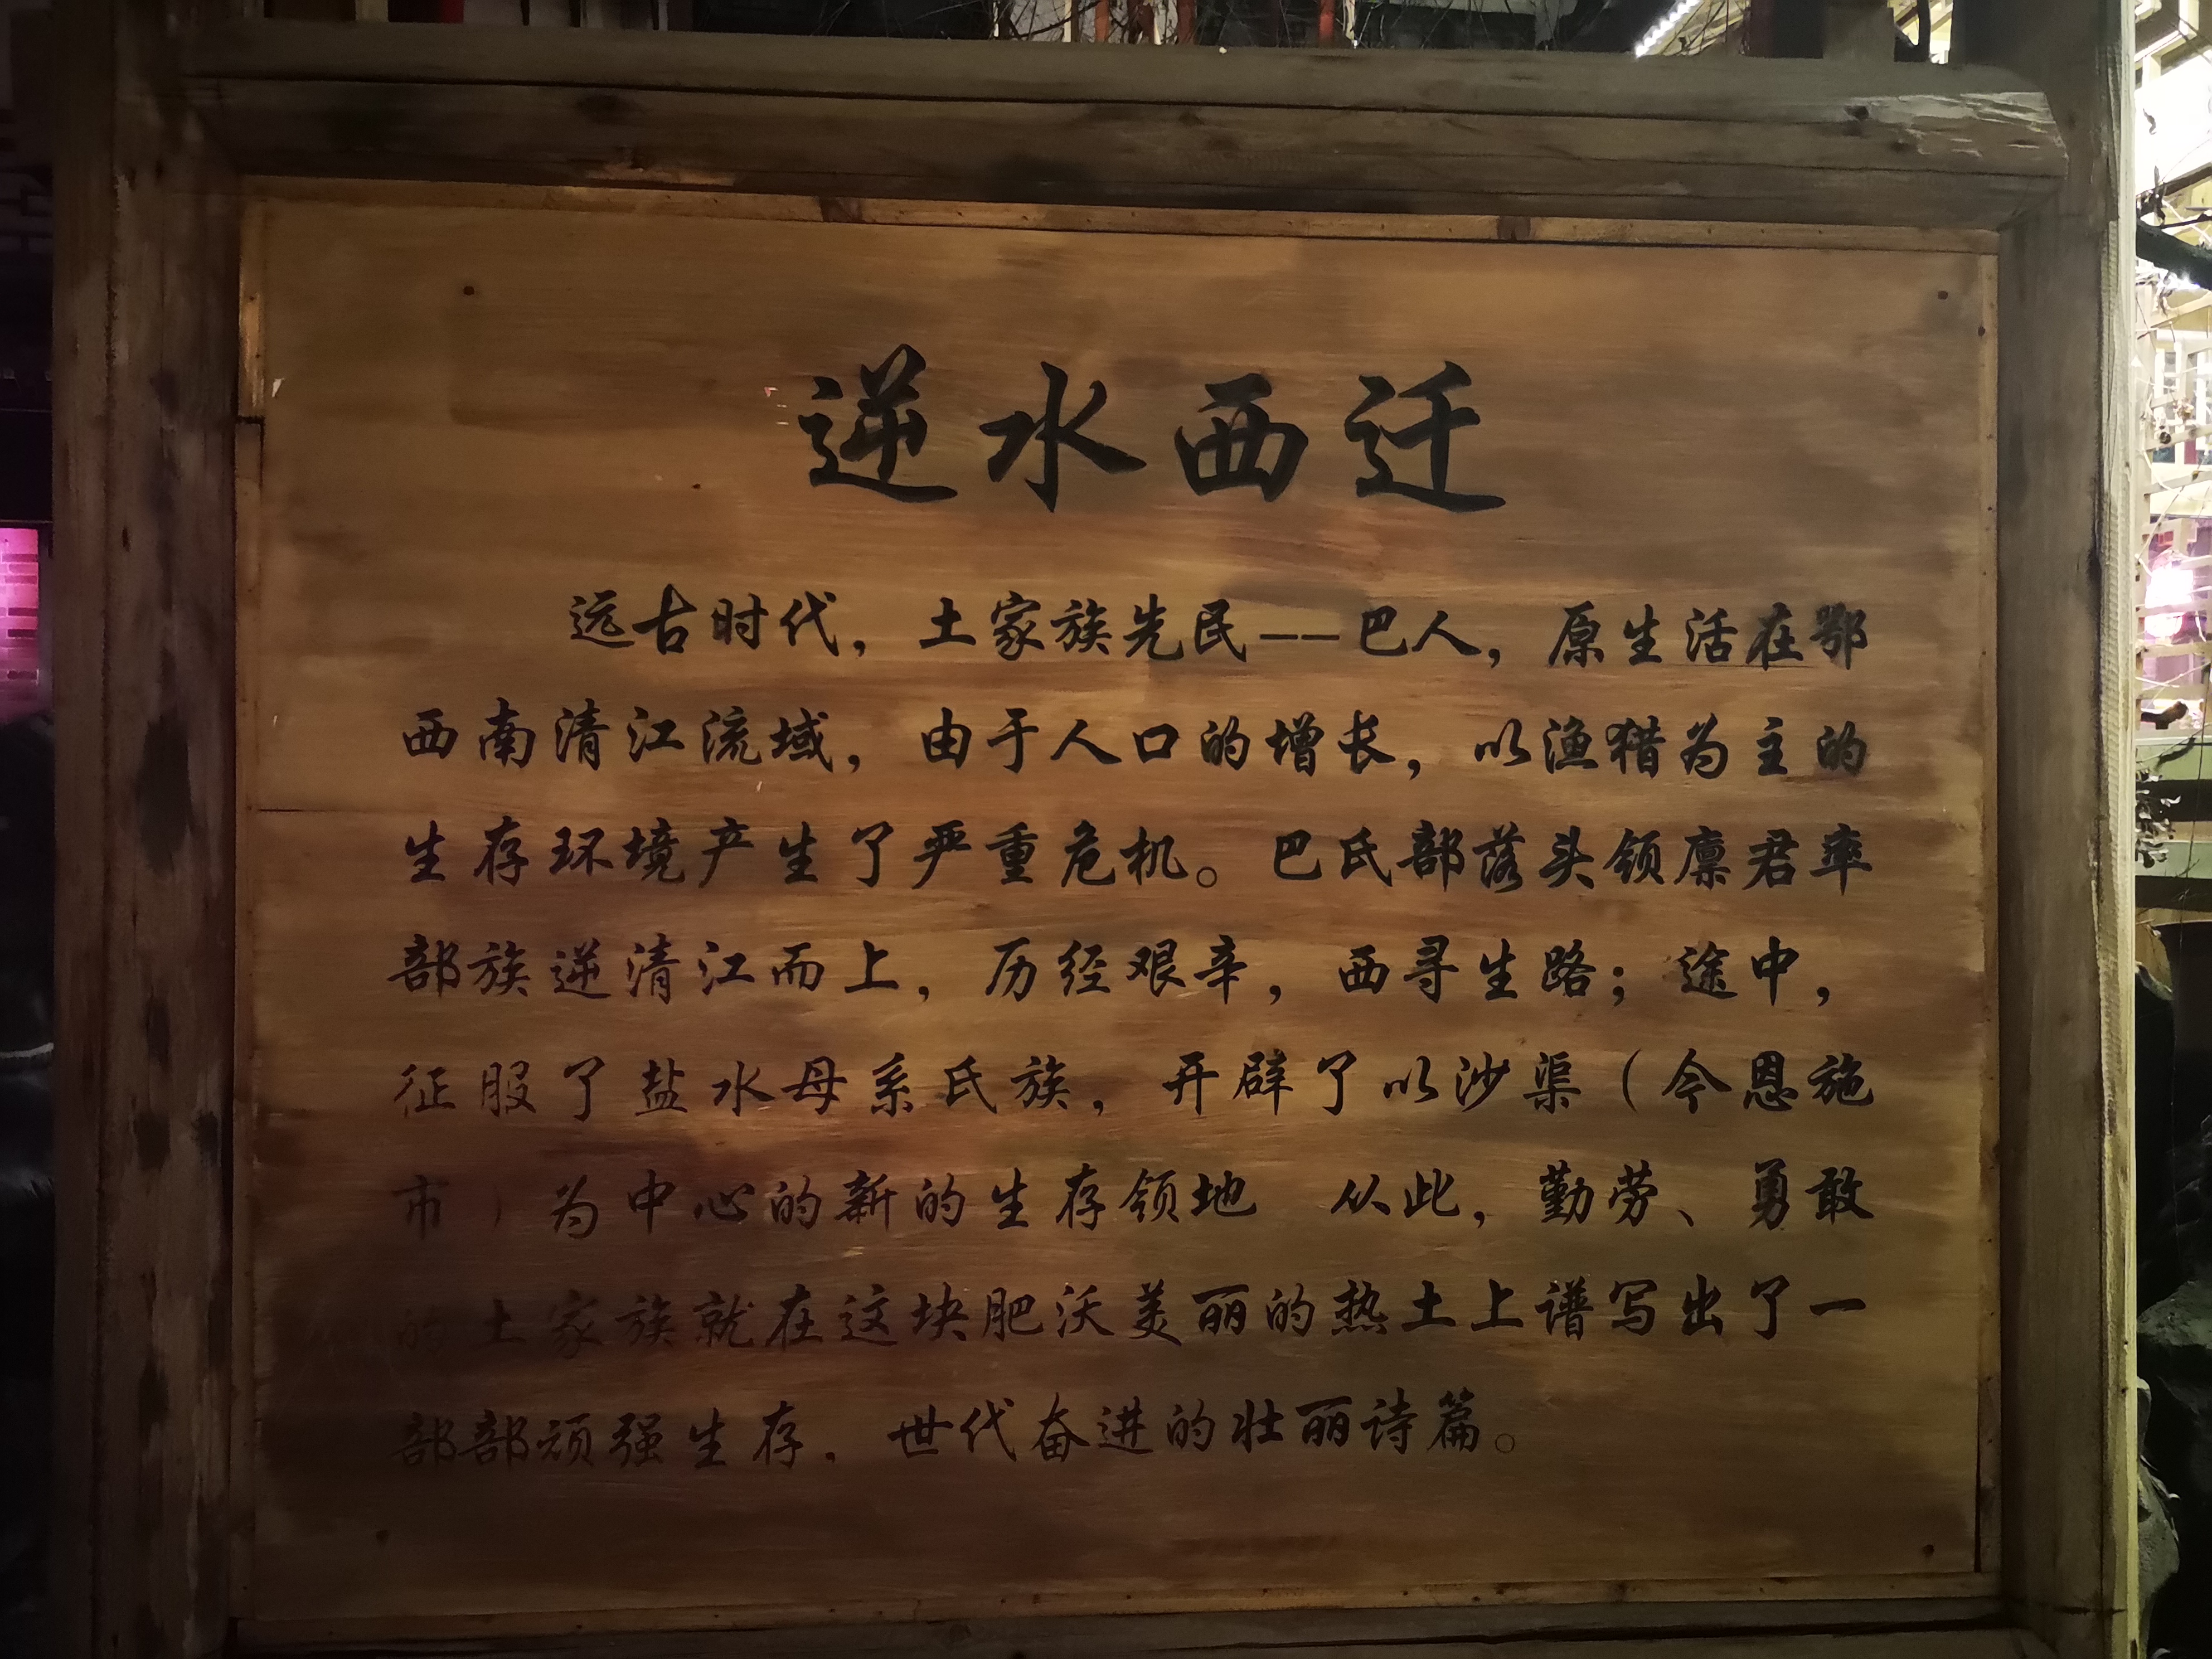 逆水西迁
远古时代，土家族先民——巴人，原生活在鄂
西南清江流域，由于人口的增长，以渔猎为主的
生存环境产生了严重危机。巴氏部落头领廪君率
部族逆清江而上，历经艰辛，西寻生路；途中，
征服了盐水母系氏族，开辟了以沙渠（今恩施
市）为中心的新的生存领地 从此，勤劳、勇敢
的土家族就在这块肥沃美丽的热土上谱写出了一
部部顽强生存，世代奋进的壮丽诗篇。